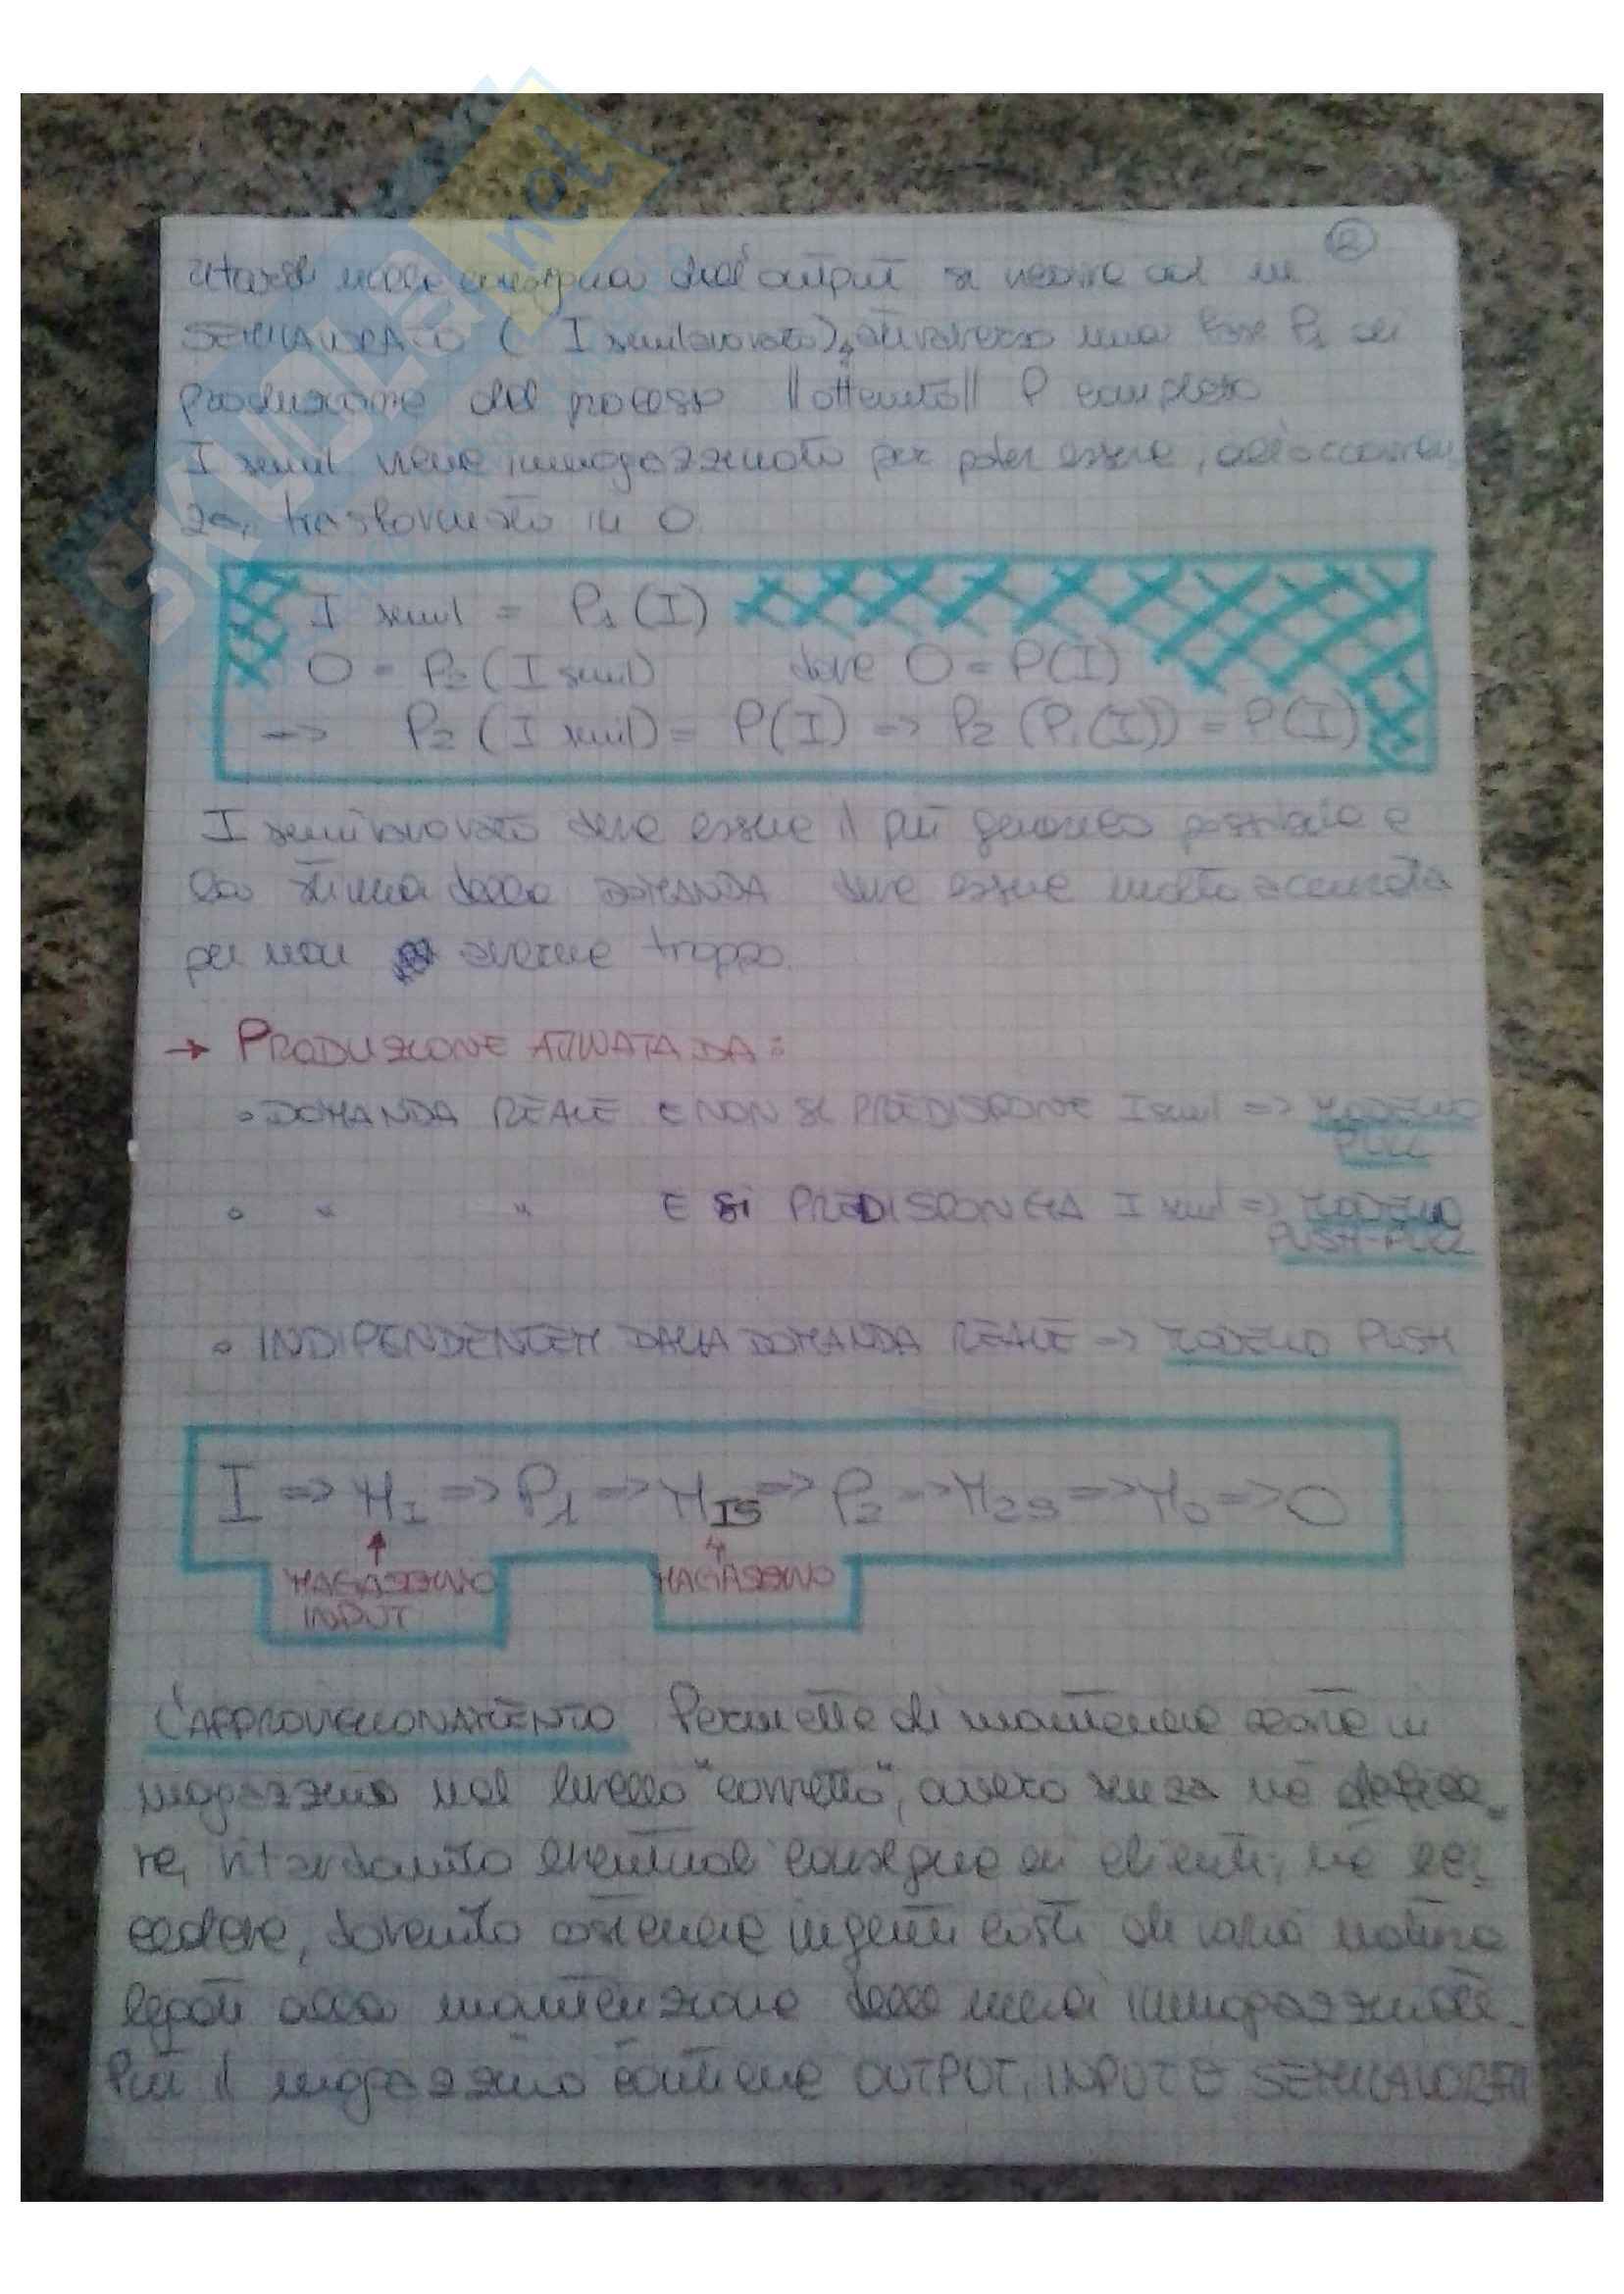 ②
ritardi nella consegna dell'output si ricorre ad un
SEMILAVORATO ( I semilavorato), attraverso una fase P₁ di
produzione del processo ||ottenuto|| P complesso
I semil viene immagazzinato per poter essere, all'occorren
za, trasformato in O.
I semil = P₁ (I)
O = P₂ (I semil) dove O = P(I)
=> P₂ (I semil) = P(I) => P₂ (P₁(I)) = P(I)
I semilavorato deve essere il più generico possibile e
la stima della DOMANDA deve essere molto accurata
per non averne troppo.
→ PRODUZIONE ATTIVATA DA:
◦ DOMANDA REALE E NON SI PREDISPONE I semil => MODELLO
PULL
◦ " " E SI PREDISPONGA I semil => MODELLO
PUSH-PULL
◦ INDIPENDENTEM DALLA DOMANDA REALE => MODELLO PUSH
I => M_I => P₁ => M_IS => P₂ => M_2S => M_O => O
MAGAZZINO MAGAZZINO
INPUT
L'APPROVVIGIONAMENTO Permette di mantenere scorte in
magazzino nel livello "corretto", ovvero senza né deficie
re, ritardando eventuali consegne ai clienti, né ec-
cedere, dovendo sostenere ingenti costi di varia natura
legati alla manutenzione delle merci immagazzinate.
Più il magazzino contiene OUTPUT, INPUT E SEMILAVORATI
SKUOLA.net